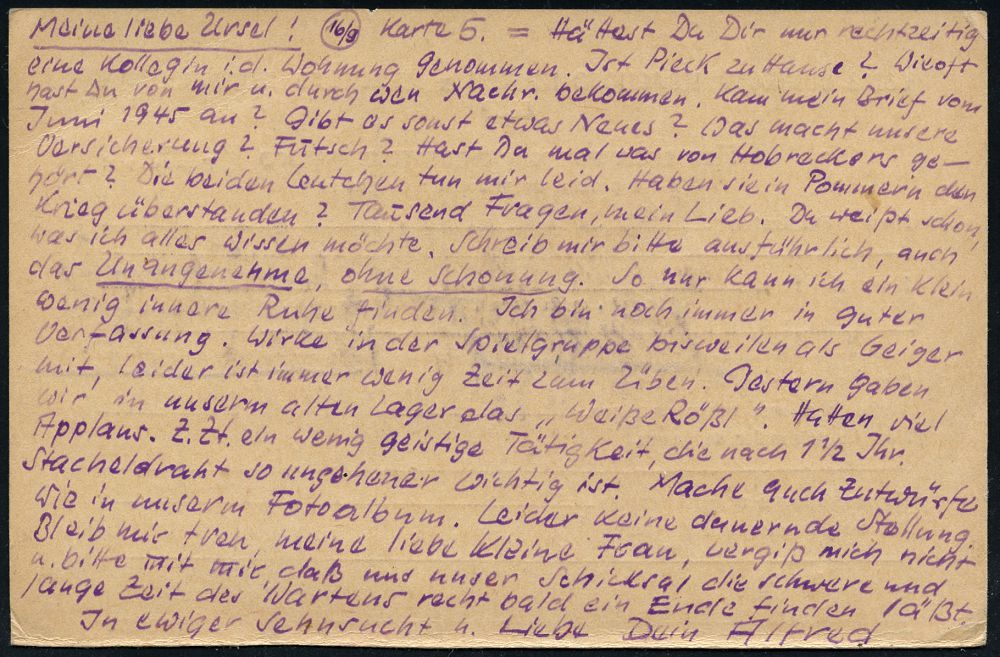 Meine liebe Ursel! 16/9 Karte 5. = Hättest Du Dir nur rechtzeitig
eine Kollegin i.d. Wohnung genommen. Ist Pieck zu Hause? Wieoft
hast Du von mir u. durch wen Nachr. bekommen. Kam mein Brief vom
Juni 1945 an? Gibt es sonst etwas Neues? Was macht unsere
Versicherung? Futsch? Hast Du mal was von Hobreckers ge-
hört? Die beiden Leutchen tun mir leid. Haben sie in Pommern den
Krieg überstanden? Tausend Fragen, mein Lieb. Du weißt schon,
was ich alles wissen möchte. Schreib mir bitte ausführlich, auch
das Unangenehme, ohne Schonung. So nur kann ich ein klein
wenig innere Ruhe finden. Ich bin noch immer in guter
Verfassung. Wirke in der Spielgruppe bisweilen als Geiger
mit, leider ist immer wenig Zeit zum Üben. Gestern gaben
wir in unserm alten Lager das „Weiße Rößl". Hatten viel
Applaus. Z.Zt. ein wenig geistige Tätigkeit, die nach 1 1/2 Jhr.
Stacheldraht so ungeheuer wichtig ist. Mache auch Entwürfe
wie in unserm Fotoalbum. Leider keine dauernde Stellung.
Bleib mir treu, meine liebe kleine Frau, vergiß mich nicht
u. bitte mit mir daß uns unser Schicksal die schwere und
lange Zeit des Wartens recht bald ein Ende finden läßt.
In ewiger Sehnsucht u. Liebe Dein Alfred